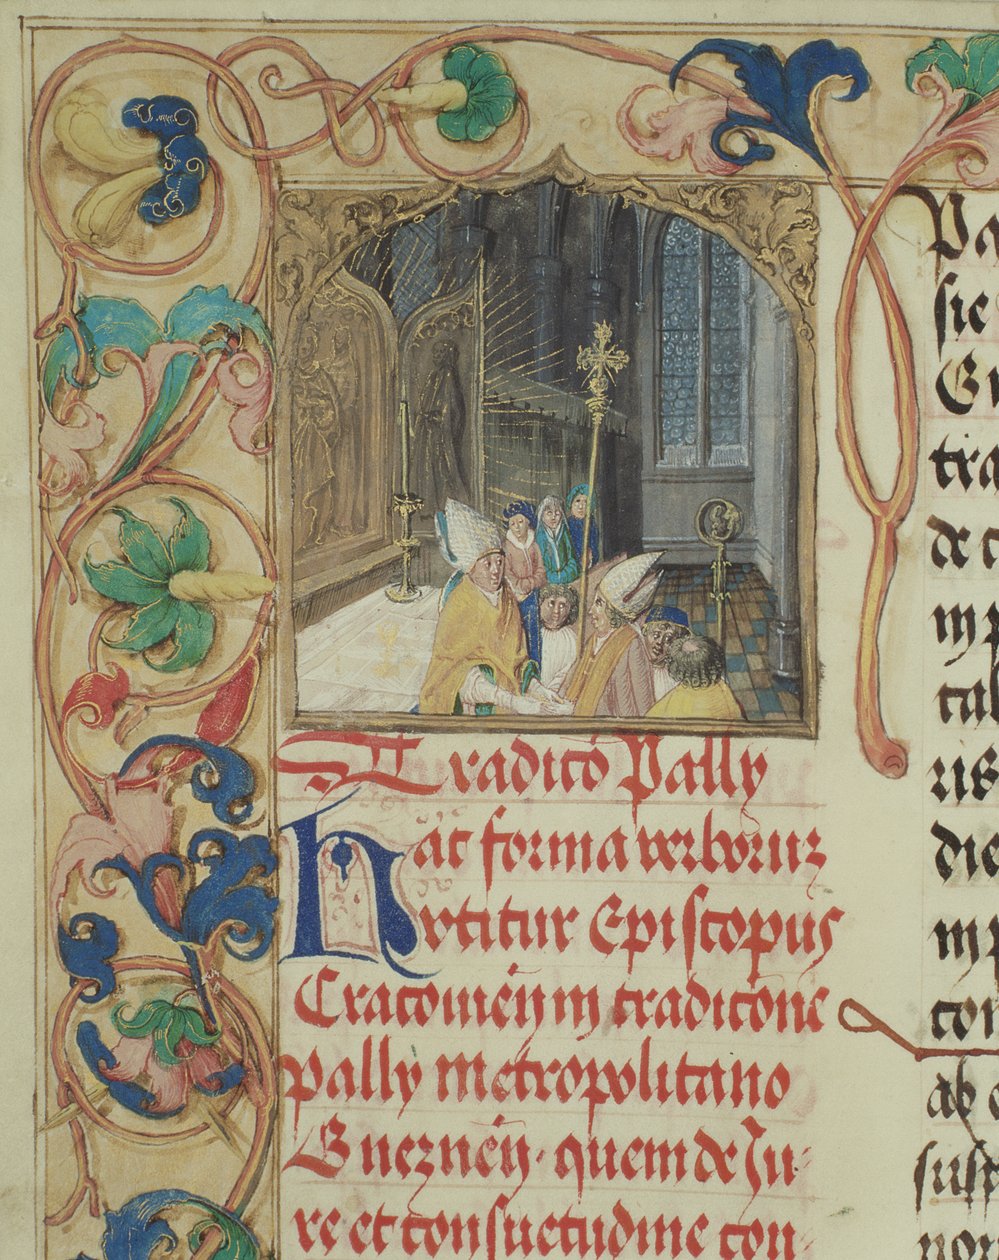 Tradico Pally
hac forma verboruz
vtitur Episcopus
Cracouien in tradicone
pally metropolitano
Gneznen. quem de Ju-
re et consuetudine con-
Pa
sie
tra
de
imp
tal
ris
dic
imp
con
ab
susp
nor